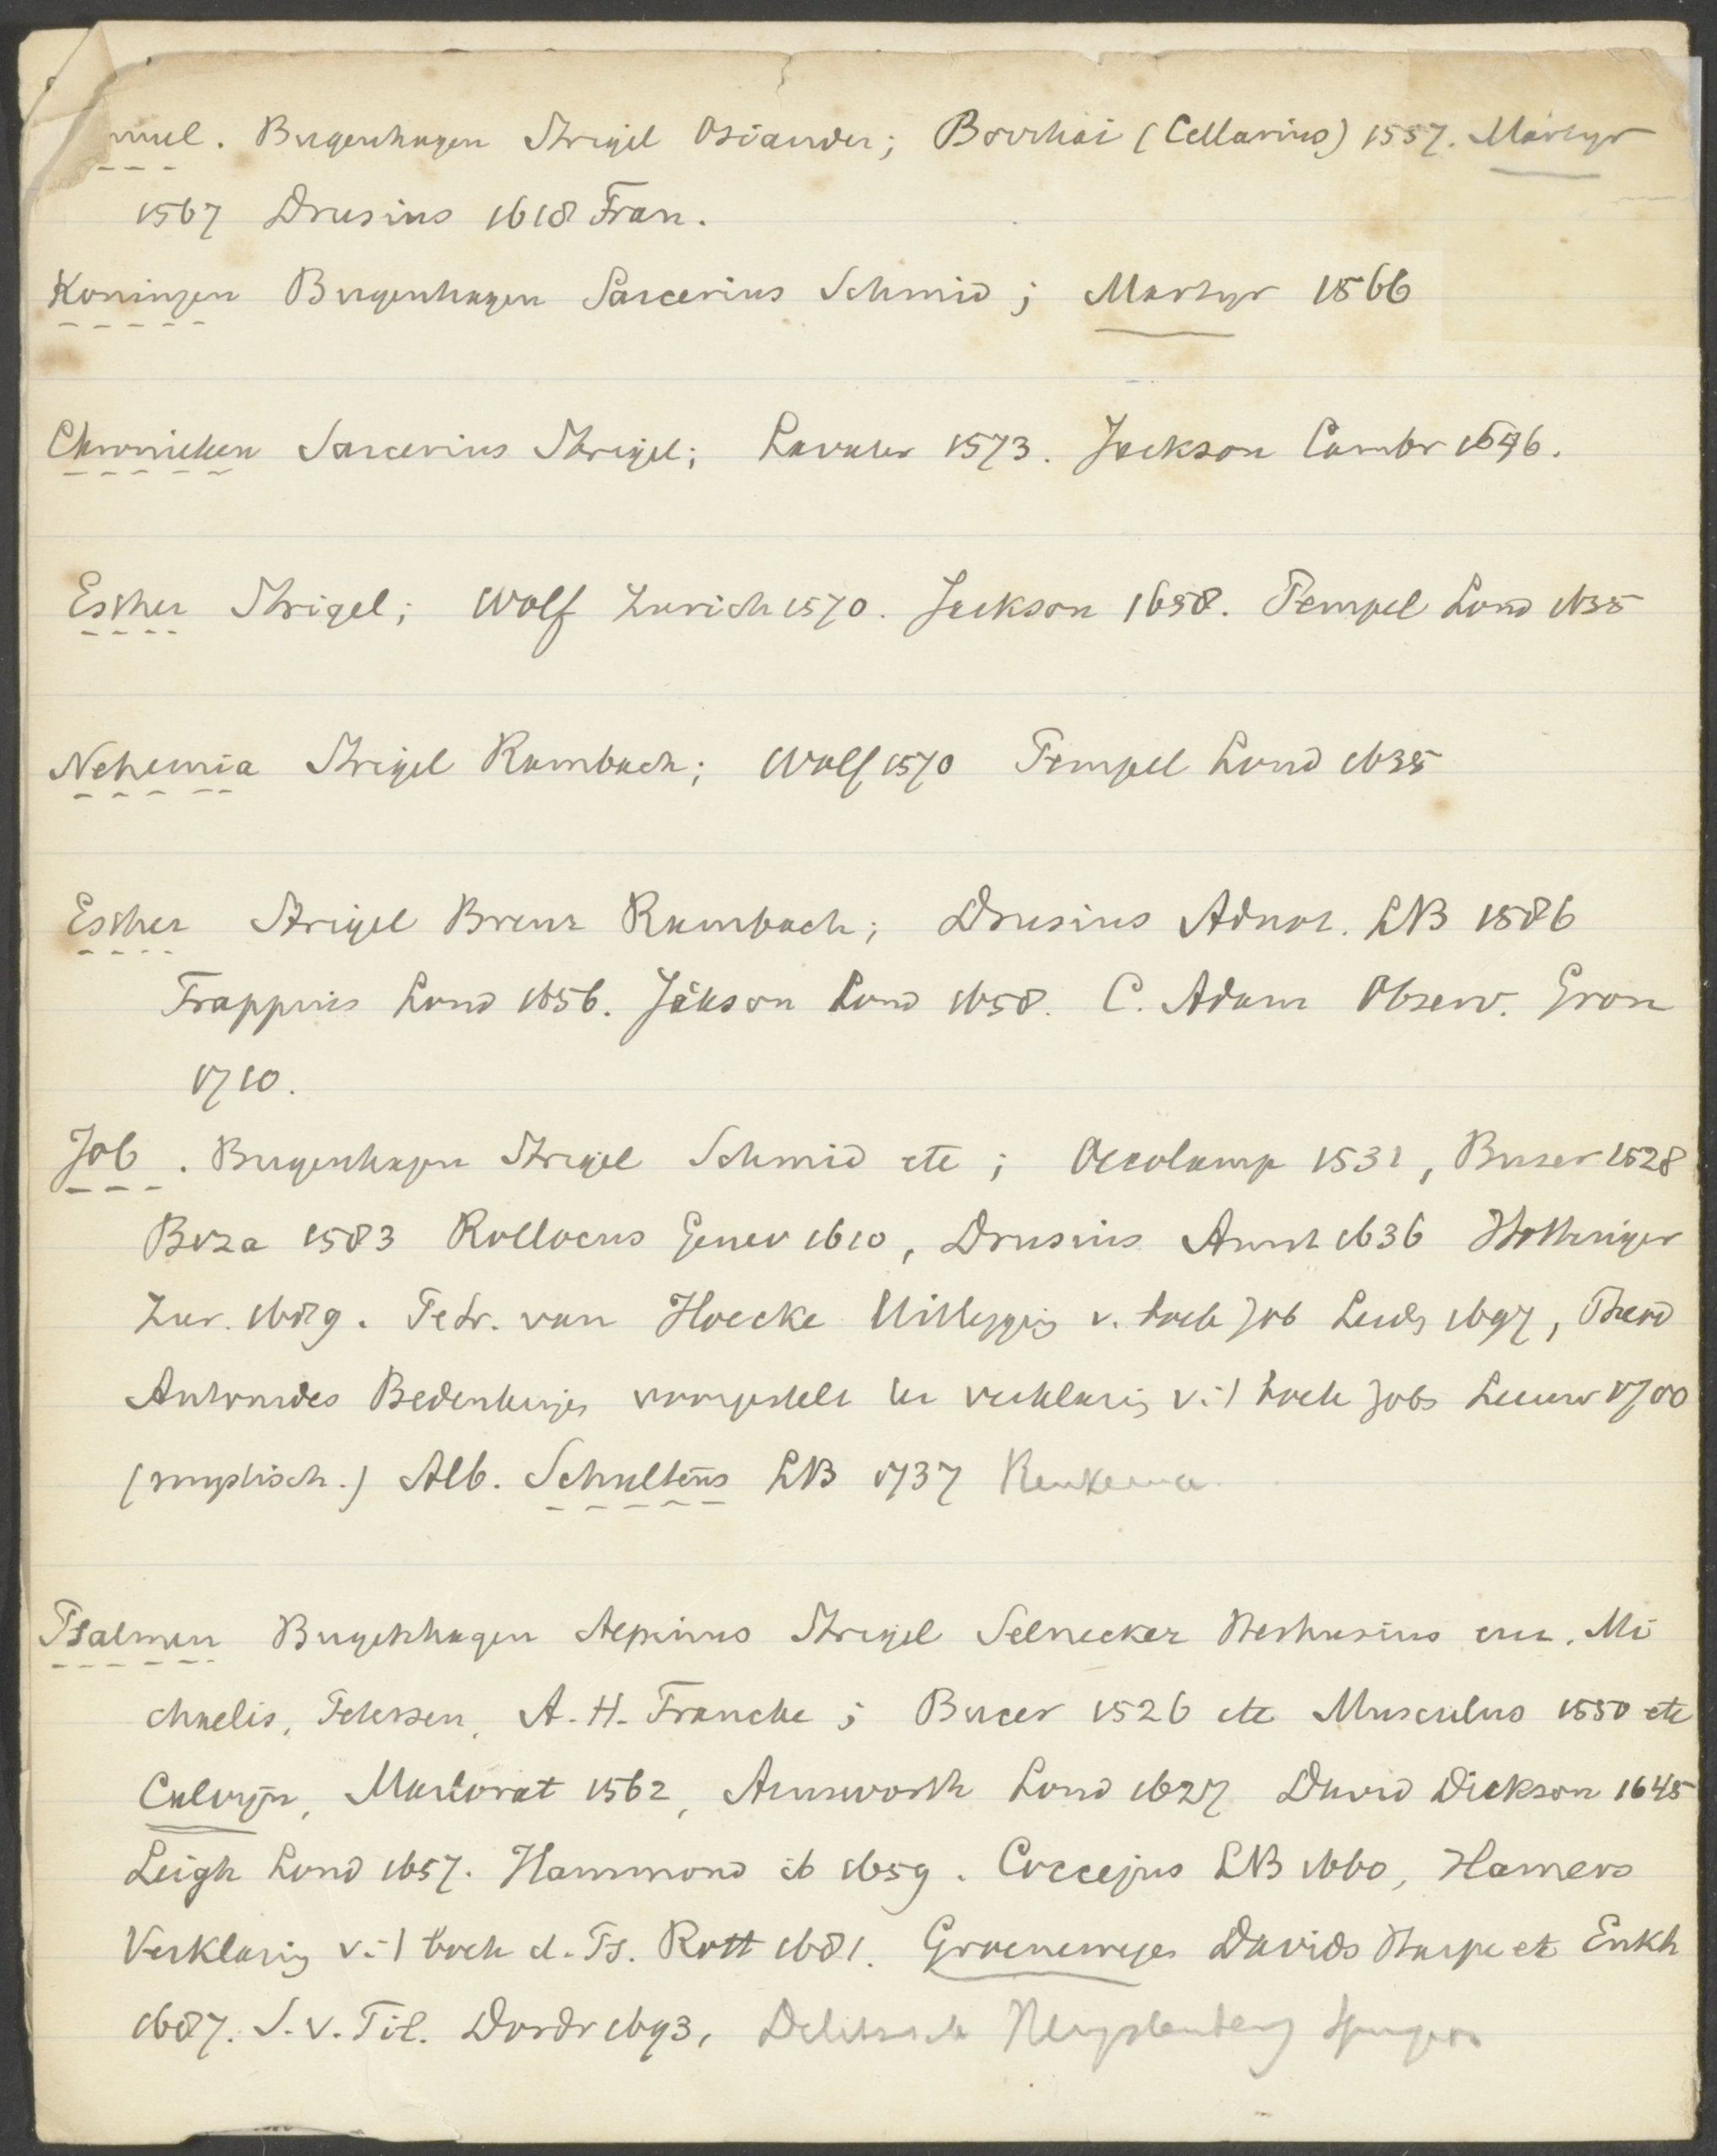 muel. Bugenhagen Strigel Osiander; Borrhai (Cellarius) 1557. Martyr
1567 Drusius 1618 Fran.
Koningen Bugenhagen Sarcerius Schmid; Martyr 1566
Chronieken Sarcerius Strigel; Lavater 1573. Jackson Cambr 1646.
Esther Strigel; Wolf Zurich 1570. Jackson 1658. Pempel Lond 1635
Nehemia Strigel Rambach; Wolf 1570 Pempel Lond 1635
Esther Strigel Brenz Rambach; Drusius Adnot. LB 1586
Trappius Lond 1656. Jakson Lond 1658. C. Adam Observ. Gron
1710.
Job. Bugenhagen Strigel Schmid etc; Oecolamp 1531, Buzer 1528
Beza 1583 Rollocus Genev 1610, Drusius Amst 1636 Hottinger
Zur. 1689. Petr. van Hoecke Uitlegging v. boek Job Leid 1697, Theod
Antonides Bedenkinge voorgestelt ter verklaring v. 't boek Jobs Leeuw 1700
(mystisch.) Alb. Schultens LB 1737
Psalmen Bugenhagen Aepinus Strigel Selnecker Heshusius enz. Mi
chaelis, Petersen, A. H. Francke; Bucer 1526 etc Musculus 1550 etc
Calvijn, Marlorat 1562, Ainsworth Lond 1627 David Dickson 1645
Leigh Lond 1657. Hammond ib 1659. Coccejus LB 1660, Hamers
Verklaring v. 't boek d. Ps. Rott 1681. Groenewege Davids Harpe etc Enkh
1687. S. v. Til. Dordr 1693, Delitzsch Hengstenberg Spurgeon